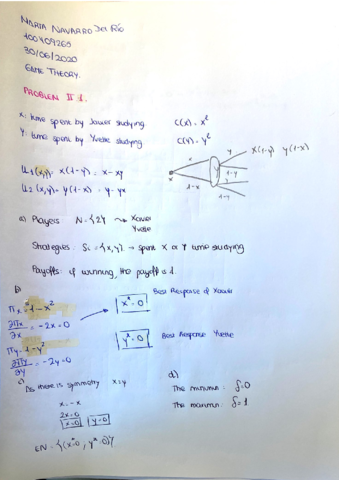 MARIA NAVARRO Del Río
100409265
30/06/2020
GAME THEORY.
PROBLEM II 1.
x: time spent by Xavier studying C(x) = x²
y: time spent by Yvette studying C(y) = y²
U₁(x,y) = x(1-y) = x - xy
U₂(x,y) = y(1-x) = y - yx
x y x(1-y) y(1-x)
1-x 1-y
y
1-y
a) Players N = {2} → Xavier
Yvette
Strategies Si = {x,y} → spent X or Y time studying
Payoffs: if winning, the payoff is 1.
b)
Πx = 1 - x²
∂Πx/∂x = -2x = 0
x* = 0 Best Response of Xavier
Πy = 1 - y²
∂Πy/∂y = -2y = 0
y* = 0 Best Response Yvette
c) As there is symmetry x=y
x = -x
2x = 0
x = 0 y = 0
EN = {(x*=0, y*=0)}
d)
The minimum: δ=0
The maximum: δ=1